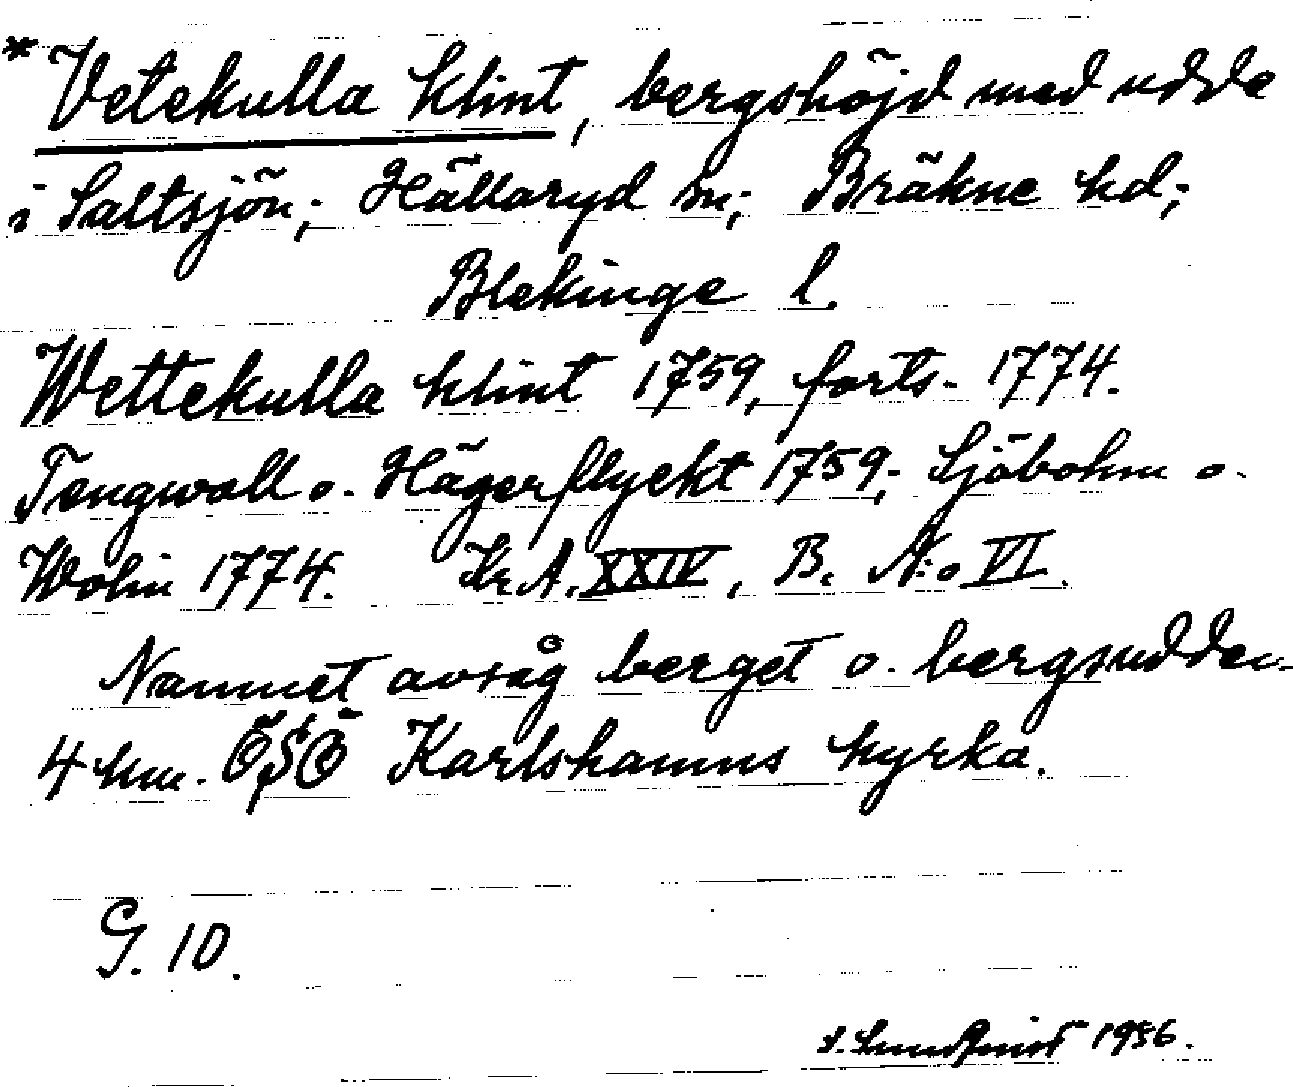 * Vetekulla Klint, bergshöjd med udde
i Saltsjön; Hällaryd sn; Bräkne hd;
Blekinge l.
Wettekulla klint 1759, forts. 1774.
Tengwall o. Hägerflyckt 1759; Sjöbohm o.
Wohn 1774. Kr. A. XXIV, B. N:o VI.
Namnet avsåg berget o. bergsudden
4 km. ÖSÖ Karlshamns kyrka.
G. 10.
S. Sundquist 1956.